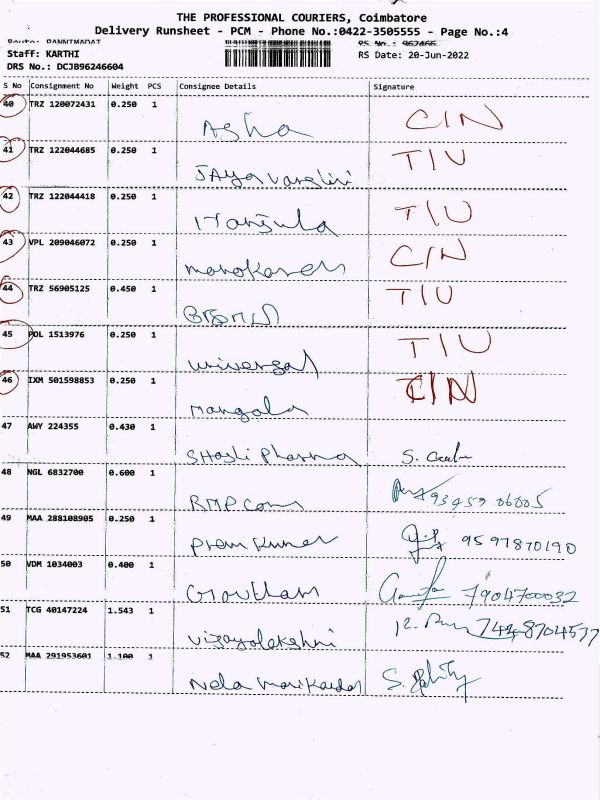 THE PROFESSIONAL COURIERS, Coimbatore
Delivery Runsheet - PCM - Phone No.:0422-3505555 - Page No.:4
Route: PANNIMADAI RS No.: 967466
Staff: KARTHI RS Date: 20-Jun-2022
DRS No.: DCJB96246604
S No Consignment No Weight PCS Consignee Details Signature
40 TRZ 120072431 0.250 1 Asha C/N
41 TRZ 122044685 0.250 1 JAya varshini T/U
42 TRZ 122044418 0.250 1 Manjula T/U
43 VPL 209046072 0.250 1 manokaran C/N
44 TRZ 56905125 0.450 1 T/U
45 POL 1513976 0.250 1 universal T/U
46 IXM 501598853 0.250 1 mangala C/N
47 AWY 224355 0.430 1 SHasti Pharma S.
48 NGL 6832700 0.600 1 RMP Cons 93459 06005
49 MAA 288108905 0.250 1 Prem Kumar 9597870190
50 VDM 1034003 0.400 1 Groutham 7904700032
51 TCG 40147224 1.543 1 vijayalakshmi 7448704577
52 MAA 291953601 1.100 1 Nela S.